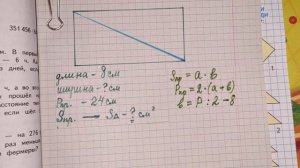 351 456
м. В первы
— 6 ч. К
з дней, есл
ч, а во вто
прошёл н
состояние
если шёл
— на 276
раз меньш
фермеро?
длина – 8 см
ширина – ? см
Pпр. – 24 см
Sпр. → SΔ – ? см²
Sпр = a · b
Pпр = 2 · (a + b)
b = P : 2 – 8